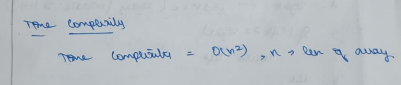 Time Complexity
Time Complexity = O(n²), n → len of array